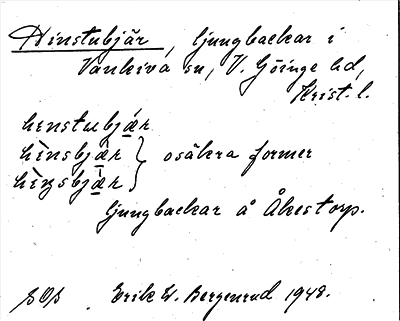 Hinstubjär, ljungbackar i
Vankiva sn, V. Göinge hd,
Krist. l.
henstubjær
hìnsbjær } osäkra former
hìnsbjær
ljungbackar å Åkestorp.
SOS Erik W. Bergenrud 1948.